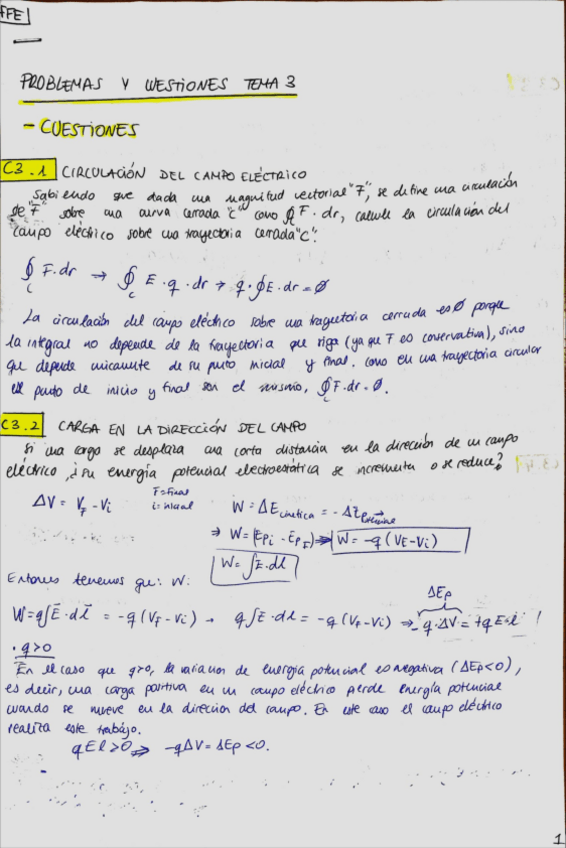 FFE
PROBLEMAS Y CUESTIONES TEMA 3
- CUESTIONES
C3.1 CIRCULACIÓN DEL CAMPO ELÉCTRICO
Sabiendo que dada una magnitud vectorial "F", se define una circulación
de "F" sobre una curva cerrada "C" como ∮ F · dr, calcule la circulación del
campo eléctrico sobre una trayectoria cerrada "C".
∮c F·dr → ∮c E · q · dr → q · ∮ E · dr = Ø
La circulación del campo eléctrico sobre una trayectoria cerrada es Ø porque
la integral no depende de la trayectoria que siga (ya que F es conservativa), sino
que depende unicamente de su punto inicial y final. Como en una trayectoria circular
el punto de inicio y final son el mismo, ∮c F·dr = Ø.
C3.2 CARGA EN LA DIRECCIÓN DEL CAMPO
Si una carga se desplaza una corta distancia en la dirección de un campo
eléctrico, ¿su energía potencial electrostática se incrementa o se reduce?
ΔV = VF - Vi F=Final i=inicial W = ΔEcinética = -ΔEpotencial
⇒ W = (Epi - EpF) ⇒ W = -q (VF - Vi)
W = ∫E·dl
Entonces tenemos que: W:
ΔEp
W = q∫E·dl = -q (VF - Vi) → q∫E·dl = -q (VF - Vi) ⇒ -q·ΔV = +qE·l
· q>0
En el caso que q>0, la variacion de energía potencial es negativa (ΔEp<0),
es decir, una carga positiva en un campo eléctrico pierde energía potencial
cuando se mueve en la direccion del campo. En este caso el campo eléctrico
realiza este trabajo.
qEl>0 ⇒ -qΔV = ΔEp <0.
1